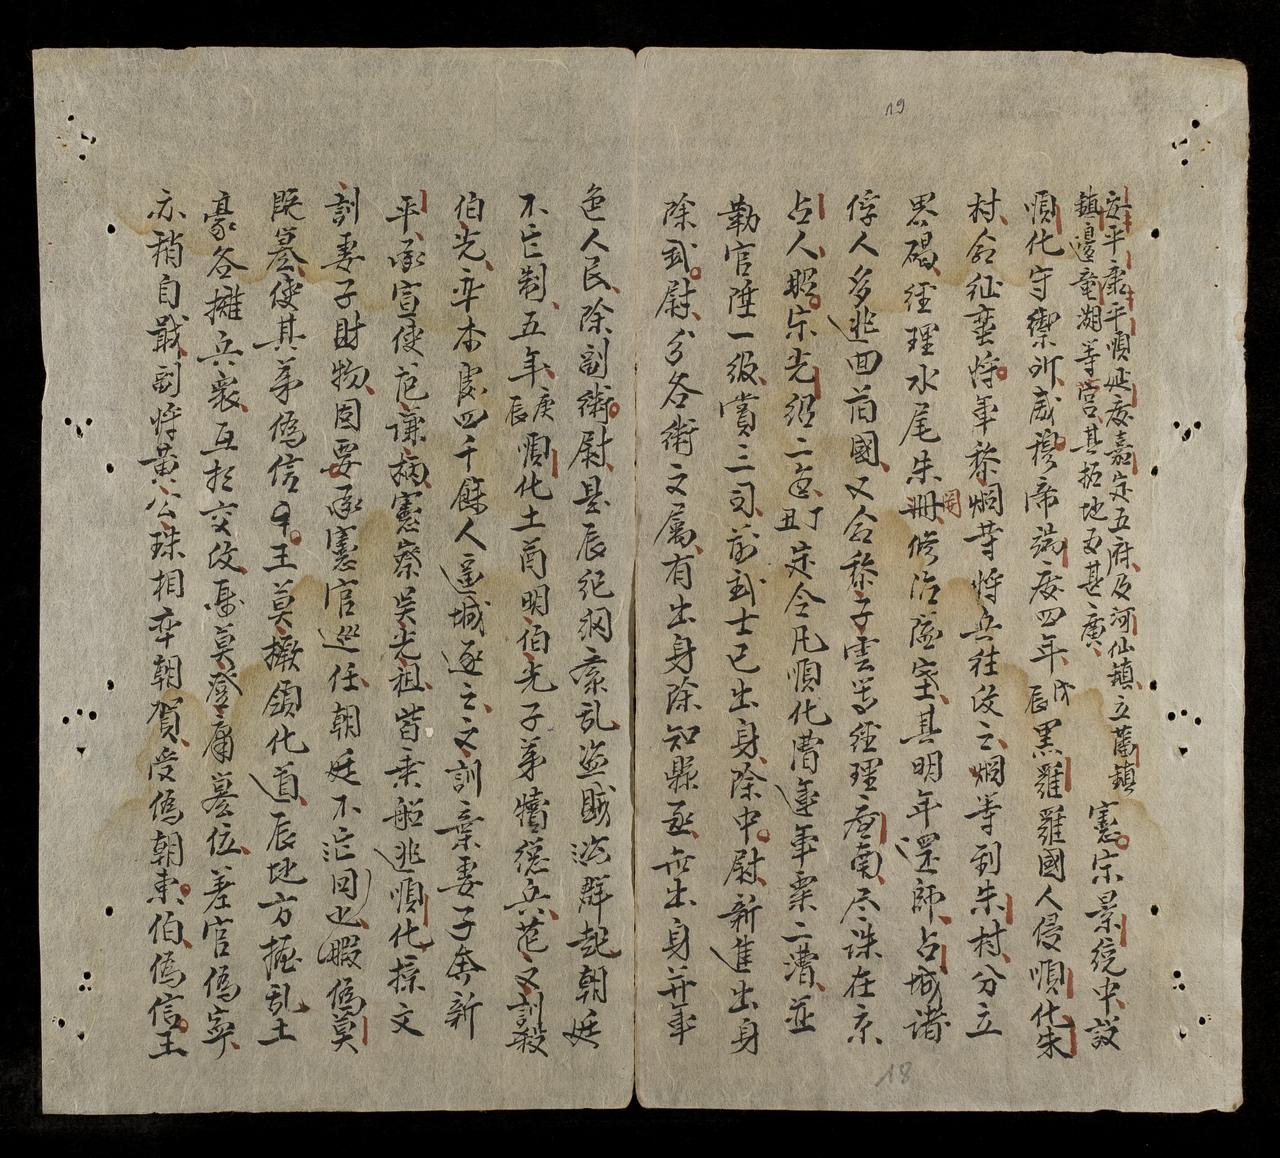 19
定平康平順延慶嘉定五府及河仙鎮立舊鎮
鎮邊竜湖等営其拓地為甚廣
憲宗景統中設
順化守禦所威穆帝端慶四年戊辰黑羅羅國人侵順化朱
村令征蠻将軍黎烱等将兵往攻之烱等到朱村分立
界碣経理水尾朱冊修治盛室其明年還師占城諸
関
俘人多逃回前國又令黎子雲等経理廣南尽誅在京
占人昭宗光紹二年丁丑定令凡順化漕運軍粟二漕並
勒官陞一級賞三司前武士已出身除中尉新進出身
除武尉分各衛文属有出身除知縣丞無出身并軍
色人民除副衛尉是辰紀綱紊乱盗賊洶群起朝廷
不忘制五年庚辰順化土酋明伯光子弟犒德兵范文訓殺
伯光率本處四千餘人逼城逐之文訓棄妻子奔新
平承宣使范謙病憲察吳光祖皆乗船逃順化採文
訓妻子財物固要承憲官巡任朝廷不忘回也暇偽莫
既簒使其弟偽信王莫橛領化道辰地方擾乱土
豪各擁兵衆互相交攻惠莫登庸簒位差官偽寧
亦稍自戢副将黄公珠相率朝賀受偽朝東伯偽信王
18